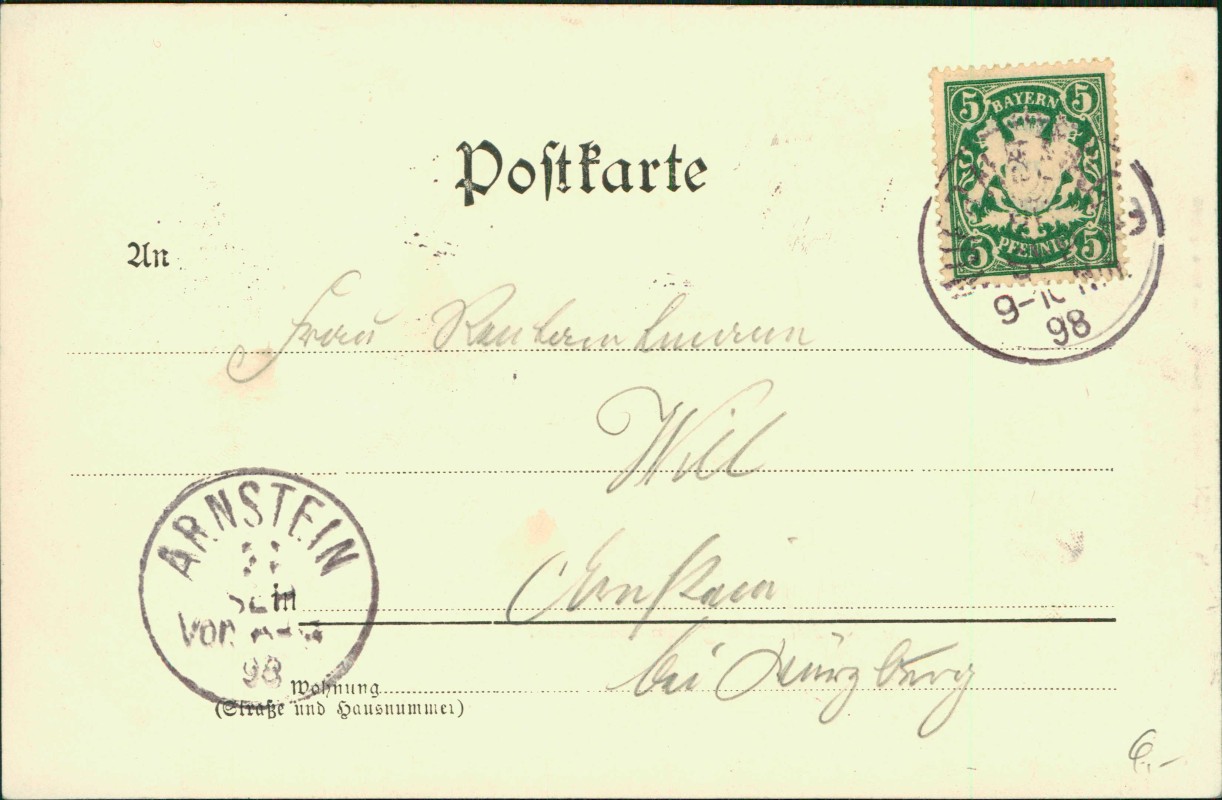 5 BAYERN 5
5 PFENNIG 5
9-10
98
Postkarte
An
Frau Rentamtmann
Will
Arnstein
bei Würzburg
ARNSTEIN
Vor.
98
in
Wohnung
(Straße und Hausnummer)
6.-